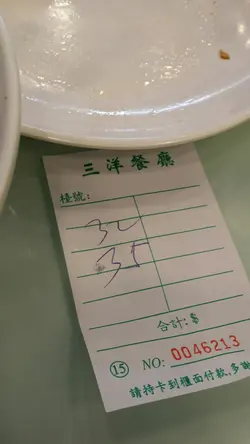 三洋餐廳
檯號:
32
35
合計: $
⑮ NO: 0046213
請持卡到櫃面付款,多謝